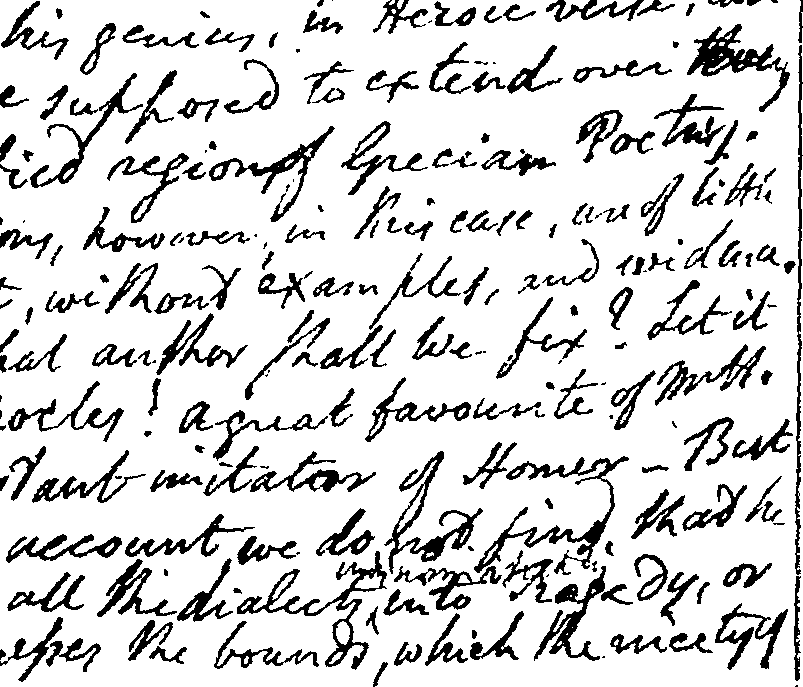 his genius, in Heroic verse,
supposed to extend over
region of Grecian Poetry.
however, in this case, are of little
, without examples, and evidence.
author shall we fix? Let it
! a great favourite of Mr H.
imitator of Homer – But
account, we do not find, that he
all the dialects, into Tragedy, or
the bounds, which the nicety of